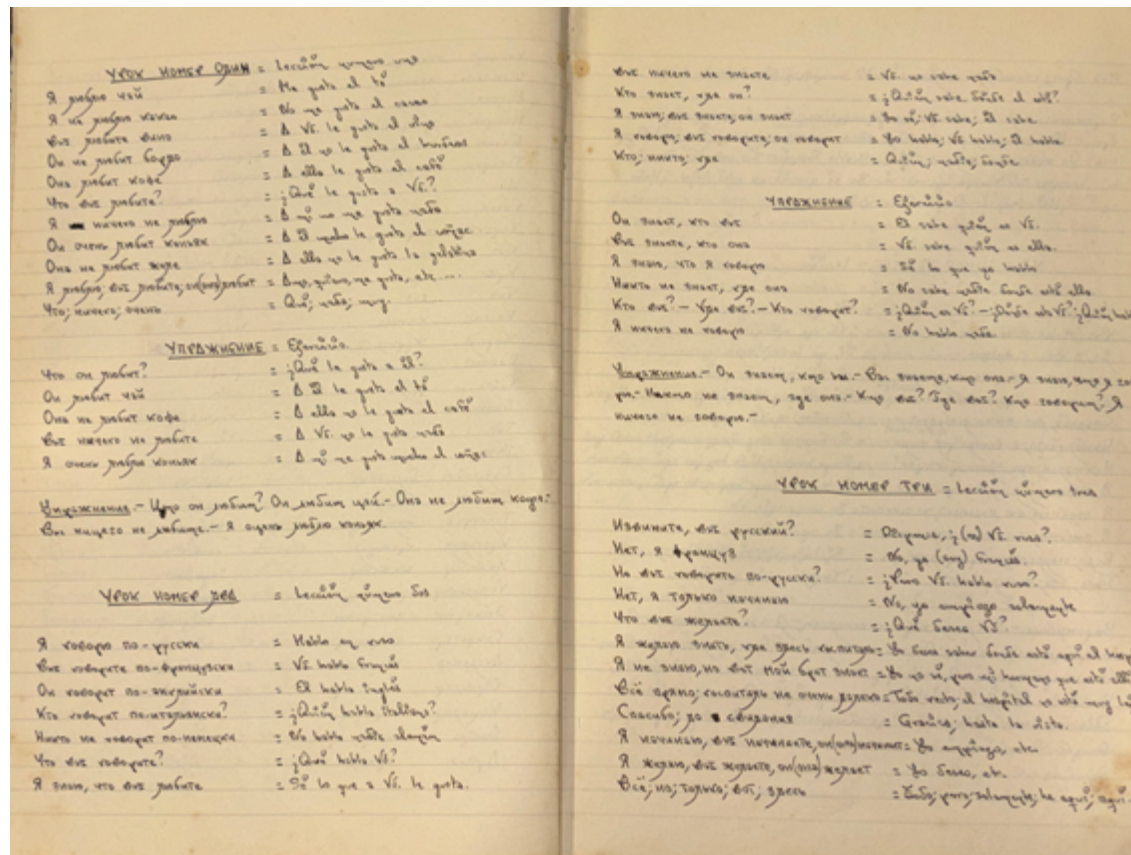 УРОК НОМЕР ОДИН = Lección número uno
Я люблю чай = Me gusta el té
Я не люблю какао = No me gusta el cacao
Вы любите вино = A Vd. le gusta el vino
Он не любит бордо = A él no le gusta el burdeos
Она любит кофе = A ella le gusta el café
Что вы любите? = ¿Qué le gusta a Vd.?
Я ничего не люблю = A mí no me gusta nada
Он очень любит коньяк = A él mucho le gusta el coñac
Она не любит желе = A ella no le gusta la gelatina
Я люблю; вы любите; он(она) любит = me gusta, etc....
Что; ничего; очень = Qué; nada; muy.
УПРАЖНЕНИЕ = Ejercicio
Что он любит? = ¿Qué le gusta a él?
Он любит чай = A él le gusta el té
Она не любит кофе = A ella no le gusta el café
Вы ничего не любите = A Vd. no le gusta nada
Я очень люблю коньяк = A mí me gusta mucho el coñac
Упражнение.- Что он любит? Он любит чай.- Она не любит кофе.-
Вы ничего не любите.- Я очень люблю коньяк.
УРОК НОМЕР ДВА = Lección número dos
Я говорю по-русски = Hablo en ruso
Вы говорите по-французски = Vd. habla francés
Он говорит по-английски = Él habla inglés
Кто говорит по-итальянски? = ¿Quién habla italiano?
Никто не говорит по-немецки = No habla nadie alemán
Что вы говорите? = ¿Qué habla Vd?
Я знаю, что вы любите = Sé lo que a Vd. le gusta.
Вы ничего не знаете = Vd. no sabe nada
Кто знает, где он? = ¿Quién sabe dónde él está?
Я знаю; вы знаете; он знает = Yo sé; Vd sabe; Él sabe
Я говорю; вы говорите; он говорит = Yo hablo; Vd habla; Él habla
Кто; никто; где = Quién; nadie; donde
УПРАЖНЕНИЕ = Ejercicio
Он знает, кто вы = Él sabe quién es Vd.
Вы знаете, кто она = Vd. sabe quién es ella.
Я знаю, что я говорю = Sé lo que yo hablo
Никто не знает, где она = No sabe nadie donde está ella
Кто вы? - Где вы? - Кто говорит? = ¿Quién es Vd? - ¿Dónde está Vd? ¿Quién
Я ничего не говорю = No hablo nada.
Упражнение.- Он знает, кто вы.- Вы знаете, кто она.- Я знаю, что я гово
рю.- Никто не знает, где она.- Кто вы? Где вы? Кто говорит? Я
ничего не говорю.-
УРОК НОМЕР ТРИ = Lección número tres
Извините, вы русский? = Dispense, ¿(es) Vd. ruso?
Нет, я француз = No, yo (soy) francés
Но вы говорите по-русски? = ¿Pero Vd. habla ruso?
Нет, я только начинаю = No, yo empiezo solamente
Что вы желаете? = ¿Qué desea Vd?
Я желаю знать, где здесь госпиталь = Yo deseo saber donde está aquí el
Я не знаю, но вот мой брат знает = Yo no sé, pero mi hermano que está
Всё прямо; госпиталь не очень далеко = Todo recto; el hospital no está muy
Спасибо; до свидания = Gracias; hasta la vista.
Я начинаю, вы начинаете, он(она) начинает = Yo empiezo, etc.
Я желаю, вы желаете, он(она) желает = Yo deseo, etc.
Всё; но; только; вот; здесь = Todo; pero; solamente; he aquí; aquí.